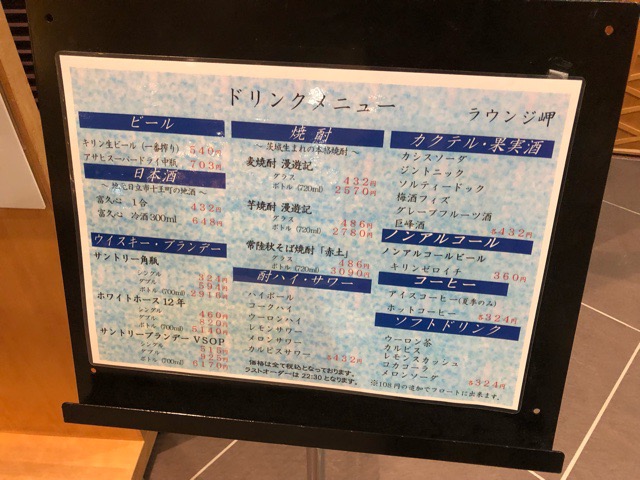 ドリンクメニュー
ラウンジ岬
ビール
キリン生ビール（一番搾り） 540円
アサヒスーパードライ中瓶 703円
日本酒
～地元日立市十王町の地酒～
富久心 1合 432円
富久心 冷酒300ml 648円
ウイスキー・ブランデー
サントリー角瓶
シングル 324円
ダブル 594円
ボトル（700ml）
ホワイトホース12年
シングル 460円
ダブル 820円
ボトル（700ml） 5140円
サントリーブランデー VSOP
シングル
ダブル
ボトル（700ml） 6170円
焼酎
～茨城生まれの本格焼酎～
麦焼酎 漫遊記
グラス 432円
ボトル（720ml） 2570円
芋焼酎 漫遊記
グラス 486円
ボトル（720ml） 2780円
常陸秋そば焼酎「赤土」
グラス 486円
ボトル（720ml） 3090円
酎ハイ・サワー
ハイボール
コークハイ
ウーロンハイ
レモンサワー
メロンサワー
カルピスサワー 各432円
価格は全て税込となっております。
ラストオーダーは 22:30 となります。
カクテル・果実酒
カシスソーダ
ジントニック
ソルティードック
梅酒フィズ
グレープフルーツ酒
巨峰酒 各432円
ノンアルコール
ノンアルコールビール
キリンゼロイチ 360円
コーヒー
アイスコーヒー(夏季のみ)
ホットコーヒー 各324円
ソフトドリンク
ウーロン茶
カルピス
レモンスカッシュ
コカコーラ
メロンソーダ 各324円
※108円の追加でフロートに出来ます。